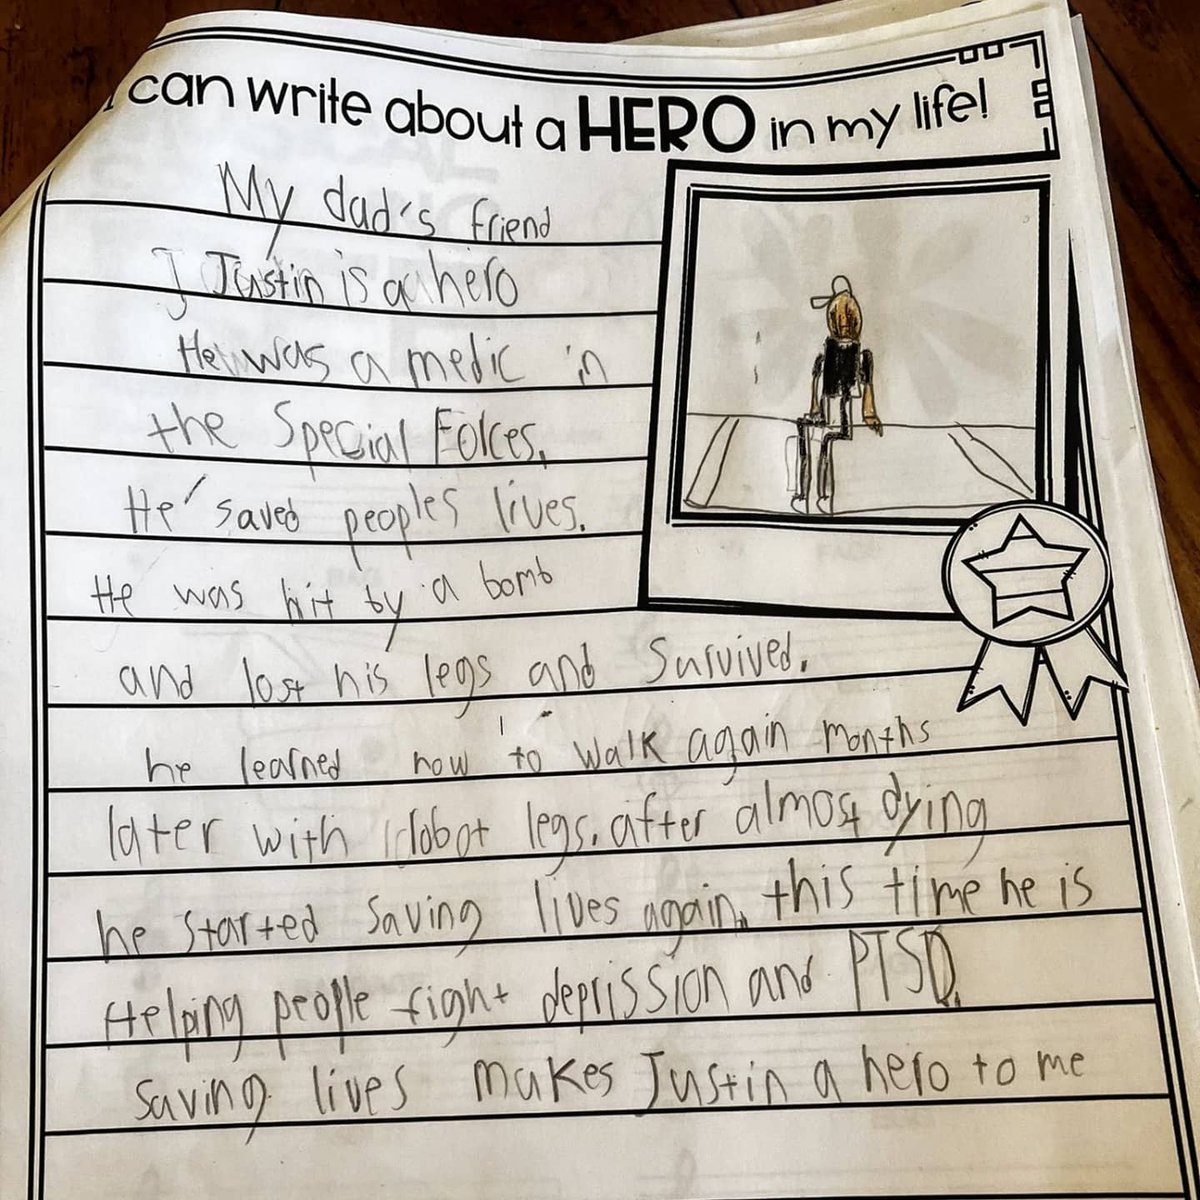 I can write about a HERO in my life!
My dad's friend
J Justin is a hero
He was a medic in
the Special Forces.
He saved peoples lives.
He was hit by a bomb
and lost his legs and Survived.
he learned how to walk again months
later with robot legs. after almost dying
he started saving lives again. this time he is
Helping people fight deprission and PTSD.
saving lives makes Justin a hero to me